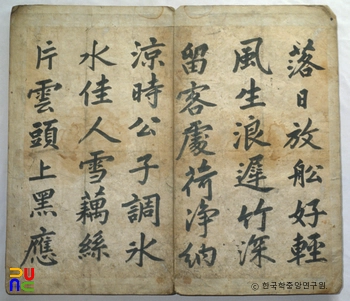 落日放船好輕
風生浪遲竹深
留客處荷净納
涼時公子調氷
水佳人雪藕絲
片雲頭上黑應
© 한국학중앙연구원